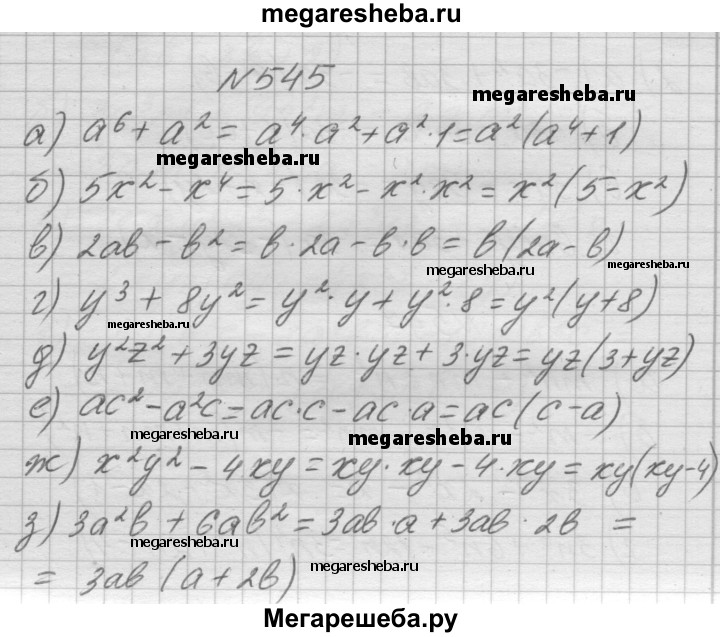 megaresheba.ru
N 545
megaresheba.ru
а) a⁶ + a² = a⁴·a² + a²·1 = a²(a⁴+1)
megaresheba.ru
б) 5x² - x⁴ = 5·x² - x²·x² = x²(5-x²)
в) 2ab - b² = b·2a - b·b = b(2a-b)
megaresheba.ru megaresheba.ru
г) y³ + 8y² = y²·y + y²·8 = y²(y+8)
megaresheba.ru
д) y²z² + 3yz = yz·yz + 3·yz = yz(3+yz)
е) ac² - a²c = ac·c - ac·a = ac(c-a)
megaresheba.ru megaresheba.ru
ж) x²y² - 4xy = xy·xy - 4·xy = xy(xy-4)
з) 3a²b + 6ab² = 3ab·a + 3ab·2b =
megaresheba.ru
= 3ab (a+2b)
megaresheba.ru
Мегарешеба.ру